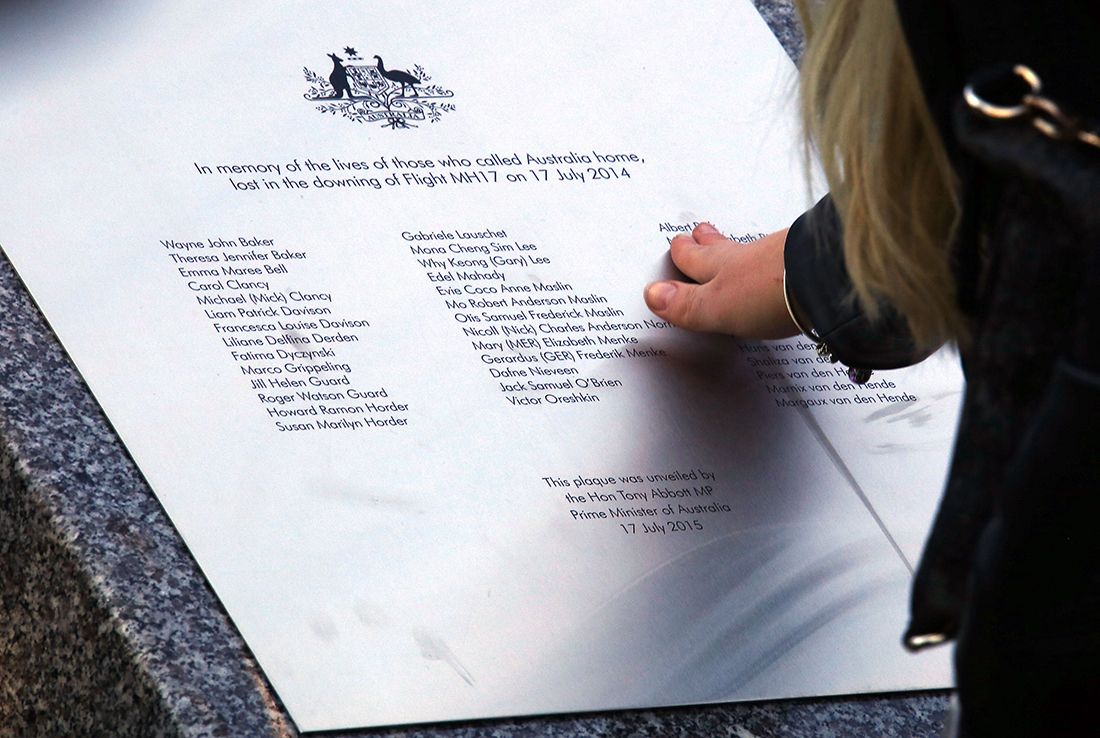 AUSTRALIA
In memory of the lives of those who called Australia home,
lost in the downing of Flight MH17 on 17 July 2014
Wayne John Baker
Theresa Jennifer Baker
Emma Maree Bell
Carol Clancy
Michael (Mick) Clancy
Liam Patrick Davison
Francesca Louise Davison
Liliane Delfina Derden
Fatima Dyczynski
Marco Grippeling
Jill Helen Guard
Roger Watson Guard
Howard Ramon Horder
Susan Marilyn Horder
Gabriele Lauschet
Mona Cheng Sim Lee
Why Keong (Gary) Lee
Edel Mahady
Evie Coco Anne Maslin
Mo Robert Anderson Maslin
Otis Samuel Frederick Maslin
Nicoll (Nick) Charles Anderson
Mary (MER) Elizabeth Menke
Gerardus (GER) Frederik Menke
Dafne Nieveen
Jack Samuel O'Brien
Victor Oreshkin
Albert
Hans van den
Shaliza van den
Piers van den
Marnix van den Hende
Margaux van den Hende
This plaque was unveiled by
the Hon Tony Abbott MP
Prime Minister of Australia
17 July 2015